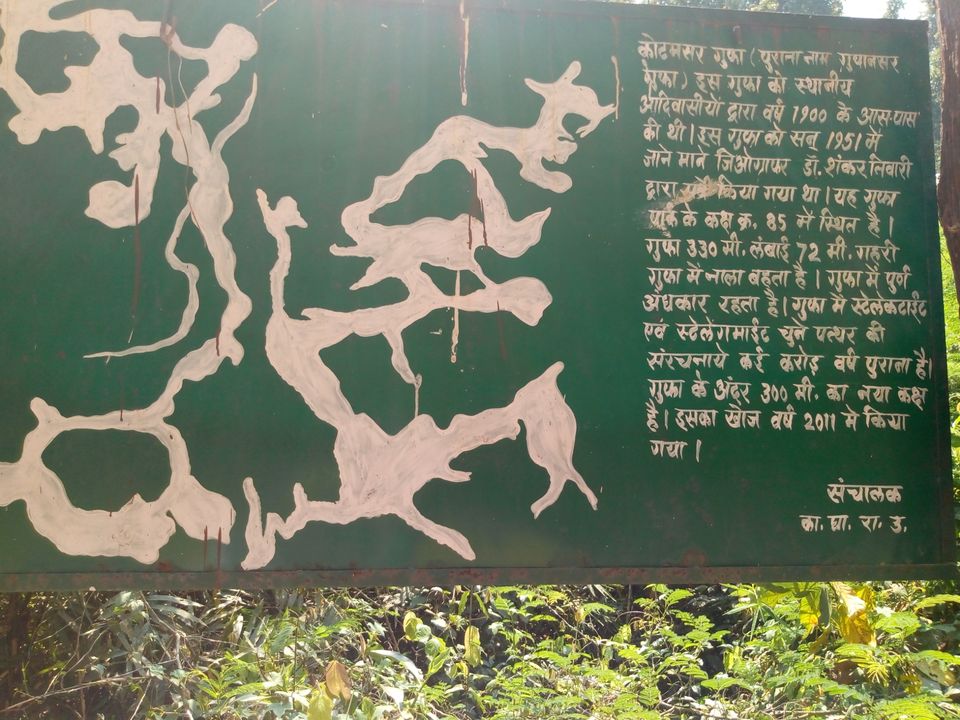 कोटमसर गुफा ( पुराना नाम गुपानसर
गुफा) इस गुफा की स्थानीय
आदिवासीयों द्वारा वर्ष 1900 के आस-पास
की थी। इस गुफा को सन् 1951 में
जाने माने जिओग्राफर डॉ. शंकर तिवारी
द्वारा किया गया था। यह गुफा
पार्क के कक्ष क्र. 85 में स्थित है।
गुफा 330 मी. लंबाई 72 मी. गहरी
गुफा में नाला बहता है। गुफा में पुर्ण
अंधकार रहता है। गुफा में स्टेलेकटाईट
एवं स्टेलेगमाईट चुने पत्थर की
संरचनाये कई करोड़ वर्ष पुराना है।
गुफा के अंदर 300 मी. का नया कक्ष
है। इसका खोज वर्ष 2011 में किया
गया।
संचालक
का. घा. रा. उ.